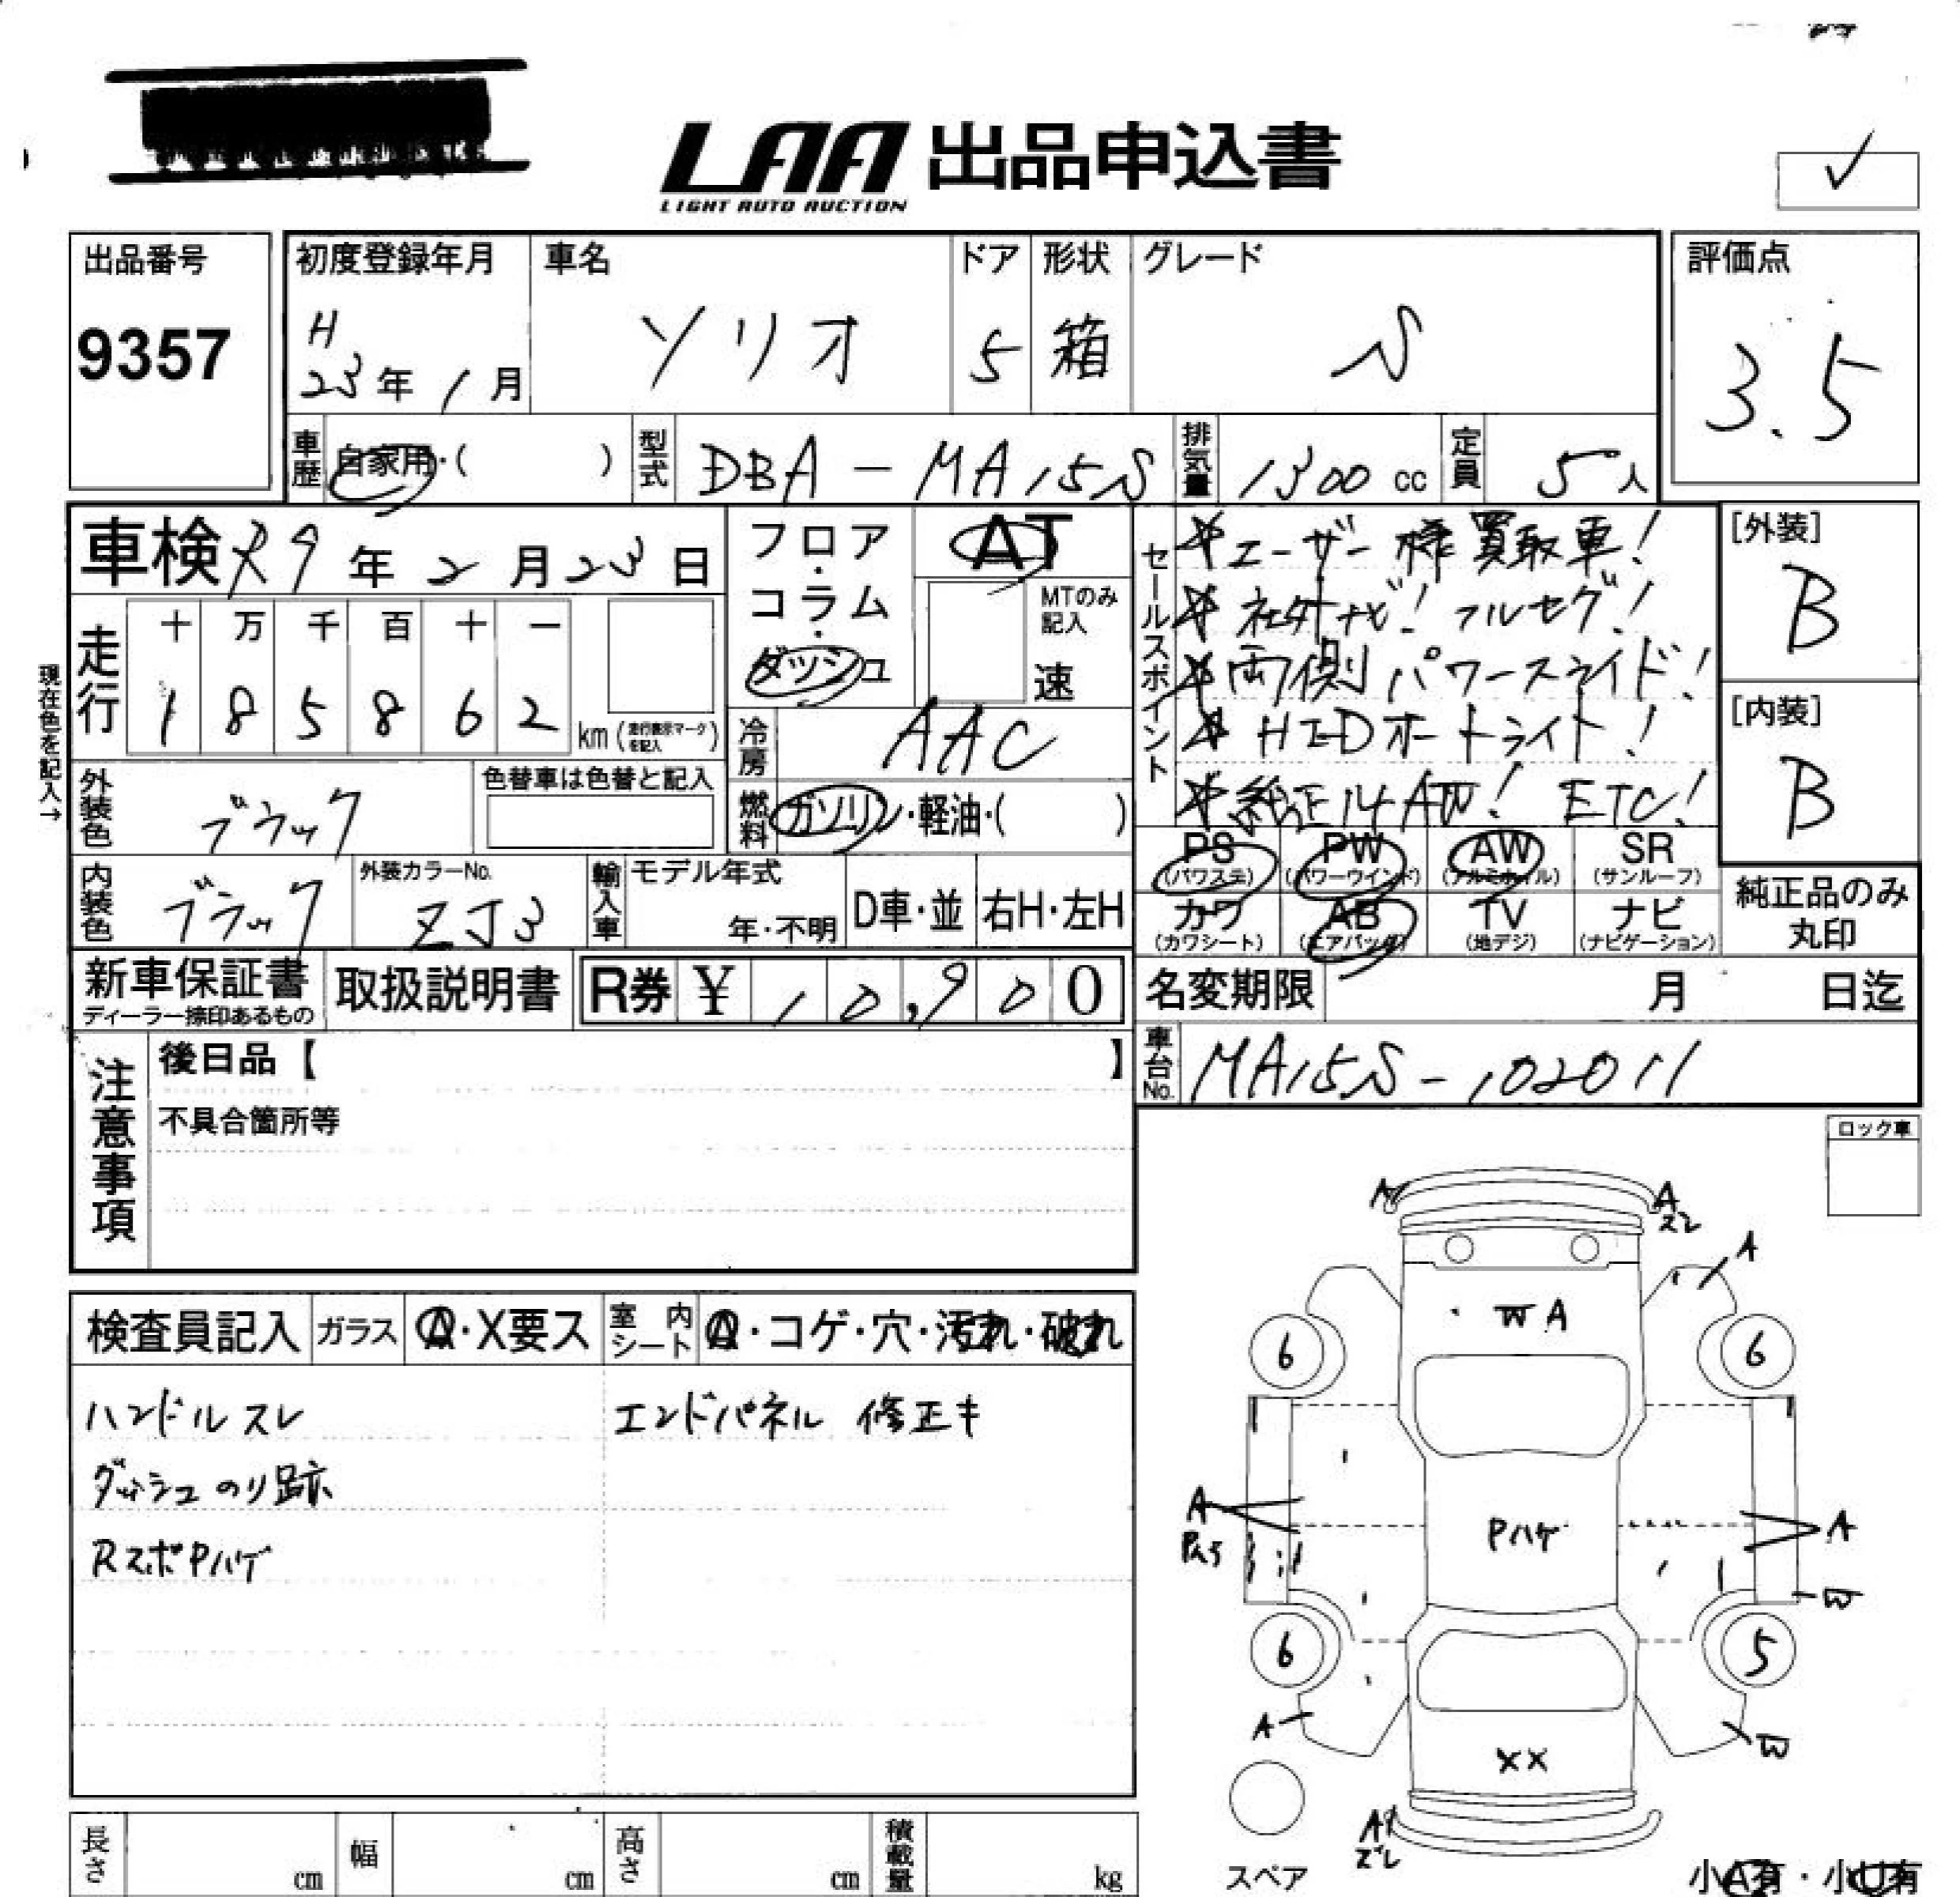 LAA 出品申込書
LIGHT AUTO AUCTION
✓
出品番号
9357
初度登録年月
H
23年 1月
車名
ソリオ
ドア
5
形状
箱
グレード
S
評価点
3.5
車歴
自家用・( )
型式
DBA-MA15S
排気量
1300 cc
定員
5人
車検 R9年 2月 23日
フロア・コラム・ダッシュ
AT
MTのみ記入
速
現在色を記入→
走行
十 万 千 百 十 一
1 8 5 8 6 2 km (走行表示マークを記入)
冷房
AAC
外装色
ブラック
色替車は色替と記入
燃料
ガソリン・軽油・( )
内装色
ブラック
外装カラーNo.
ZJ3
輸入車
モデル年式
年・不明
D車・並
右H・左H
セールスポイント
☆ユーザー様買取車!
☆社外ナビ! フルセグ!
☆両側パワースライド!
☆HIDオートライト!
☆純正14AW! ETC!
[外装]
B
[内装]
B
PS (パワステ)
PW (パワーウインド)
AW (アルミホイル)
SR (サンルーフ)
カワ (カワシート)
AB (エアバッグ)
TV (地デジ)
ナビ (ナビゲーション)
純正品のみ丸印
新車保証書
ディーラー捺印あるもの
取扱説明書
R券 ¥ 10,900
名変期限 月 日迄
車台No.
MA15S-102011
注意事項
後日品【 】
不具合箇所等
ロック車
検査員記入
ガラス
A・X要ス
室内シート
A・コゲ・穴・汚れ・破れ
ハンドルスレ
エンドパネル 修正キ
ダッシュのり跡
RスポPハゲ
A
A
ズレ
A
WA
6
6
A
Pハゲ
A
W
6
5
A
W
XX
ズレ
スペア
長さ cm
幅 cm
高さ cm
積載量 kg
小A有・小U有